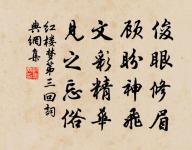 俊眼修眉
顾盼神飛
文彩精華
見之忘俗
红楼梦第三回词
興綱集